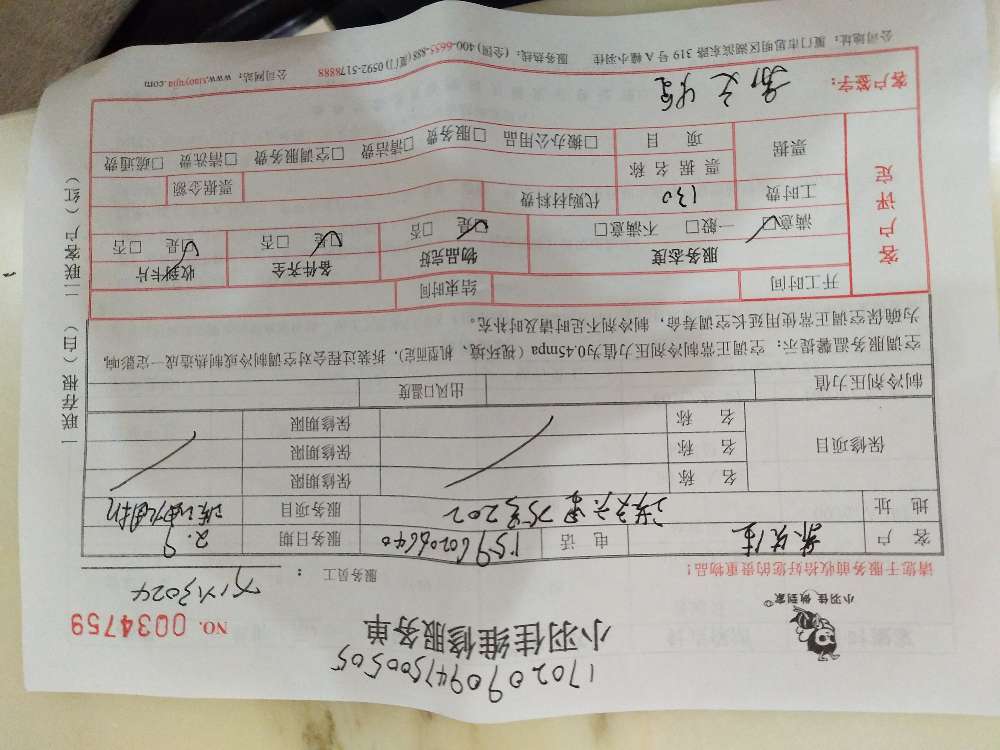 17020909447500505
小羽佳维修服务单
NO. 0034759
小羽佳 做到家
请您于服务前收拾好您的贵重物品！
服务员工：
客 户 电 话 服务日期 2.9
地 址 服务项目
保修项目 名 称 保修期限
名 称 保修期限
名 称 保修期限
制冷剂压力值 出风口温度
空调服务温馨提示：空调正常制冷剂压力值为0.45mpa（视环境、机型而定），拆装过程会对空调制冷或制热造成一定影响，
为确保空调正常使用延长空调寿命，制冷剂不足时请及时补充。
客户评定
开工时间 结束时间
服务态度 物品完好 备件齐全 收到卡片
满意□ 一般□ 不满意□ □是 □否 □是 □否 □是 □否
工时费 130 代购材料费
票据 票据名称 票据金额
项 目 □搬办公用品 □服务费 □清洁费 □空调服务费 □清洗费 □疏通费
客户签字：
公司地址：厦门市思明区湖滨东路 319 号 A 幢小羽佳 服务热线：(全国) 400-6655-888 (厦门) 0592-5178888 公司网站：www.xiaoyujia.com
一联存根（白） 二联客户（红）